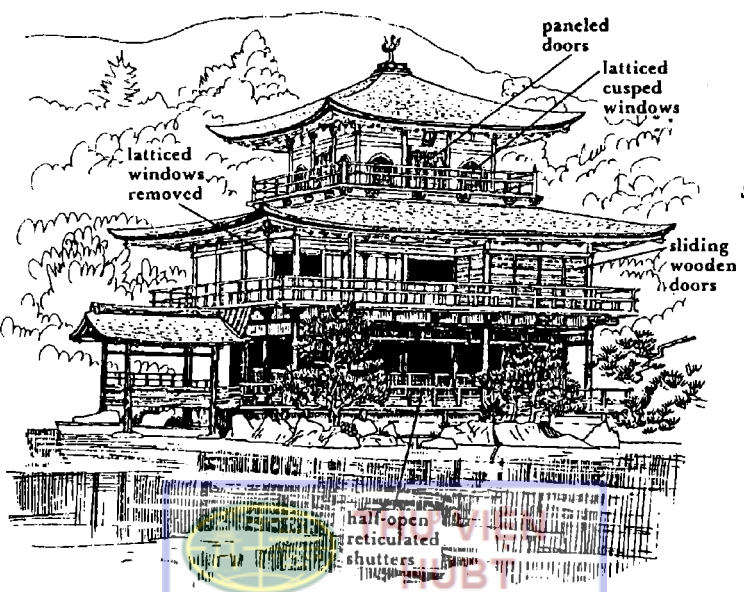 paneled
doors
latticed
cusped
windows
latticed
windows
removed
sliding
wooden
doors
half-open
reticulated
shutters
THƯ VIỆN
HUBT